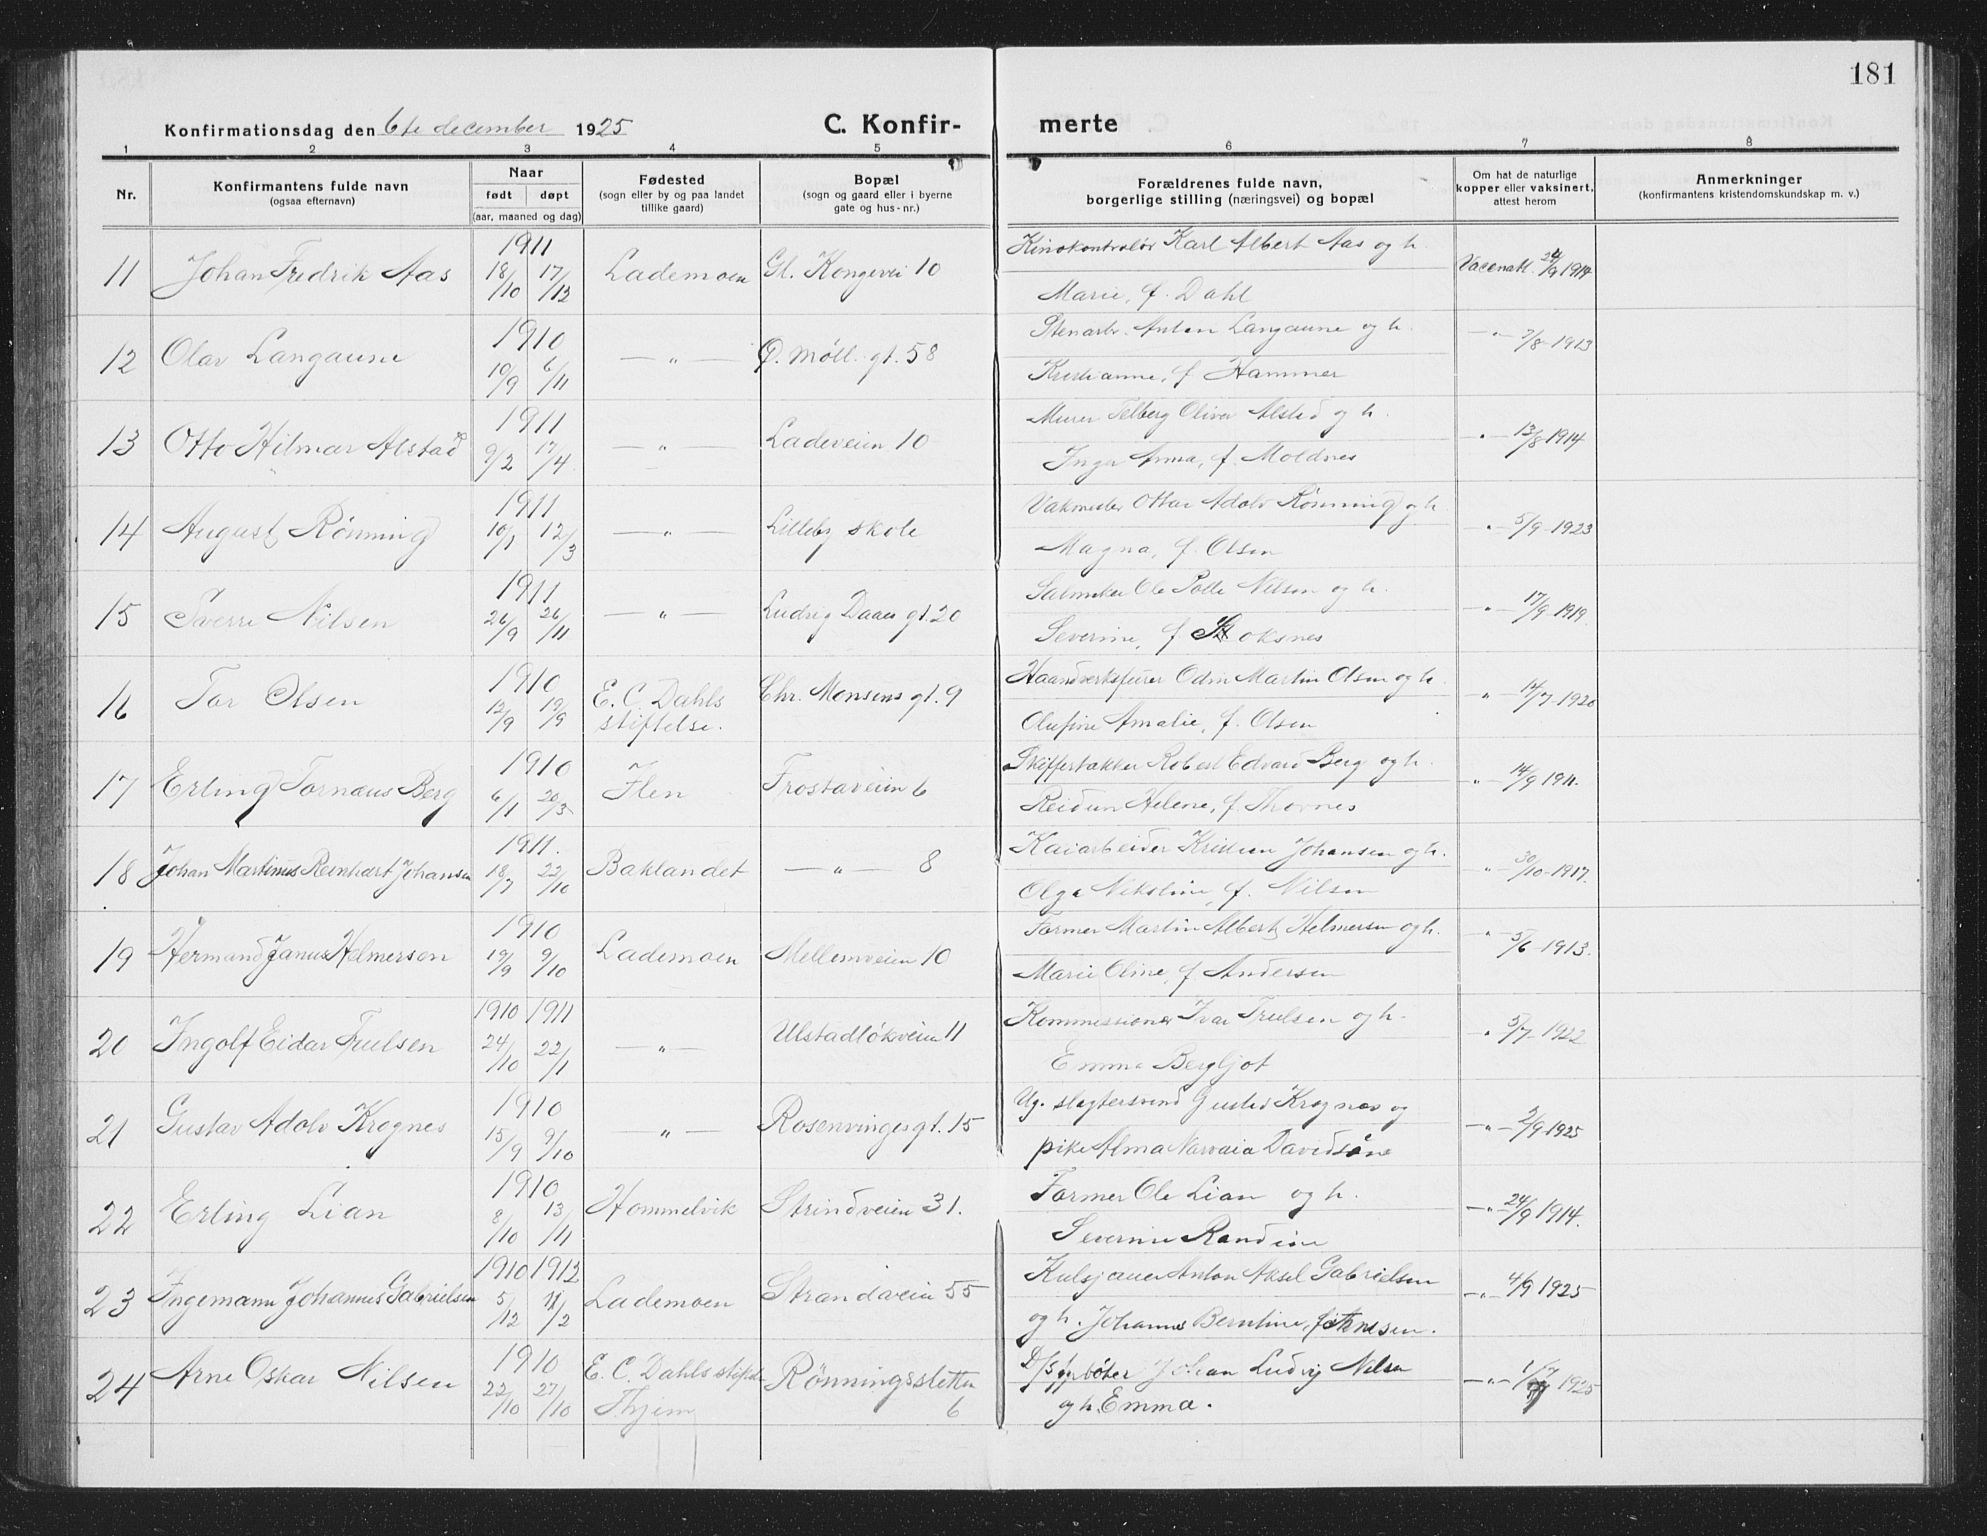 181
Konfirmationsdag den 6te december 1925 C. Konfir- merte
1 2 3 4 5 6 7 8
Nr.
Konfirmantens fulde navn
(ogsaa efternavn)
Naar
født døpt
(aar, maaned og dag)
Fødested
(sogn eller by og paa landet
tillike gaard)
Bopæl
(sogn og gaard eller i byerne
gate og hus-nr.)
Forældrenes fulde navn,
borgerlige stilling (næringsvei) og bopæl
Om hat de naturlige
kopper eller vaksinert,
attest herom
Anmerkninger
(konfirmantens kristendomskundskap m. v.)
1911 Kinokontrolør Karl Albert Aas og h.
11 Johan Fredrik Aas 18/10 17/12 Lademoen Gl. Kongevei 10 24/9 1914
Marie, f. Dahl
1910 Stenarb. Anton Langaune og h.
12 Olav Langaune 10/9 6/11 — „ — Møll. gt. 58 — „ — 7/8 1913
Kristianne, f. Hammer
1911 Murer Oliver Alstad og h.
13 Otto Hilmar Alstad 9/2 17/4 — „ — Ladeveien 10 „ — 13/8 1914
Inga Anna, f. Moldnes
1911 Vaktmester Ottar Adolv Rönning og h.
14 August Rönning 10/1 12/3 — „ — Lilleby skole „ — 5/9 1923
Magna, f. Olsen
1911 Ole Nilsen og h.
15 Sverre Nilsen 26/9 26/11 — „ — Ludvig Daaes gt. 20 — „ — 17/9 1919
Severine, f. Stoksnes
1910 Odin Martin Olsen og h.
16 Tor Olsen 12/9 19/9 E. C. Dahls Chr. Monsens gt. 9 — „ — 14/7 1920
stiftelse. Olufine Amalie, f. Olsen
1910 Robert Edvard Berg og h.
17 Erling Tornæus Berg 6/1 20/3 Ilen Frostaveien 6 „ — 14/9 1911.
Reidun Helene, f. Thornes
1911. Kaiarbeider Kristian Johansen og h.
18 Johan Martinus Reinhart Johansen 18/7 22/10 Baklandet — „ — 8 „ — 30/10 1917.
Olga Nikoline, f. Nilsen
1910 Former Martin Albert Helmersen og h.
19 Hermand Janus Helmersen 19/9 9/10 Lademoen Mellemveien 10 „ — 5/6 1913.
Marie Oline, f. Andersen
1910 1911 Kommissioner Ivar Trulsen og h.
20 Ingolf Eidar Trulsen 24/10 22/1 — „ — Ulstadlökveien 11 „ 5/7 1922
Emma Bergljot
1910 Ug. slagtersvend Gustav Krognes og
21 Gustav Adolv Krognes 15/9 9/10 — „ — Rosenvinges gt. 15 — „ — 2/9 1925
pike Alma Davidsen
1910 Former Ole Lian og h.
22 Erling Lian 8/10 13/11 Hommelvik Strindveien 31. — „ — 24/9 1914.
Severine Randine
1910 1912 Kulsjauer Anton Aksel Gabrielsen
23 Ingemann Johannes Gabrielsen 5/12 11/2 Lademoen Strandveien 55 — „ — 4/9 1925
og h. Johanne Berntine,
1910 Johan Ludvig Nilsen
24 Arne Oskar Nilsen 22/10 27/10 E. C. Dahls stiftelse Rönningsletten — „ — 1925
Thjem 6 og h. Emma.